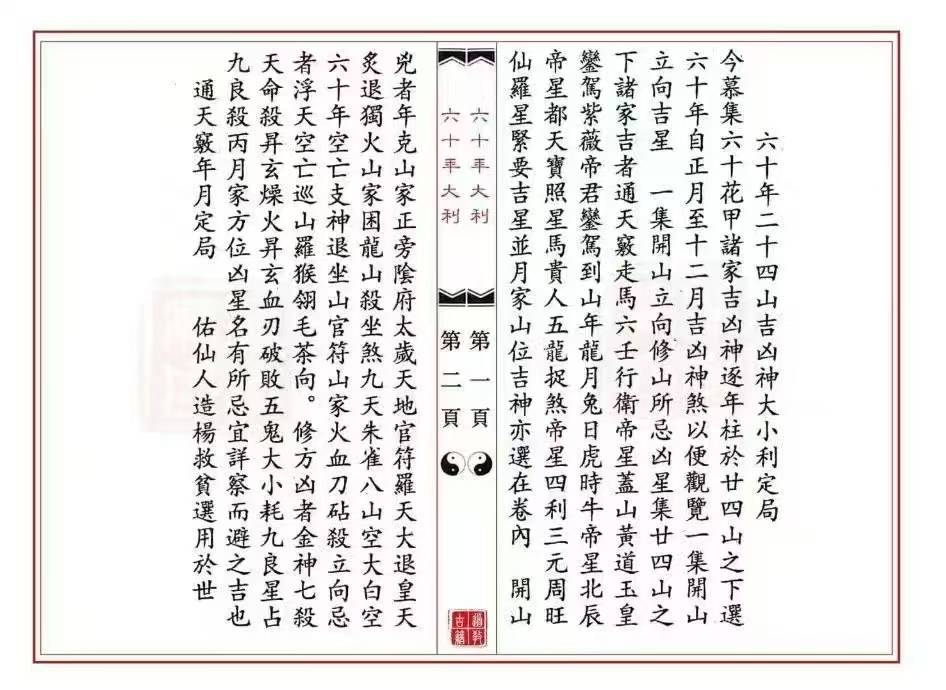 六十年二十四山吉凶神大小利定局
今慕集六十花甲諸家吉凶神逐年柱於廿四山之下選
六十年自正月至十二月吉凶神煞以便觀覽一集開山
立向吉星　一集開山立向修山所忌凶星集廿四山之
下諸家吉者通天竅走馬六壬行衛帝星蓋山黃道玉皇
鑾駕紫薇帝君鑾駕到山年龍月兔日虎時牛帝星北辰
帝星都天寶照星馬貴人五龍捉煞帝星四利三元周旺
仙羅星緊要吉星並月家山位吉神亦選在卷內　開山
六十年大利
第一頁
六十年大利
第二頁
兇者年克山家正旁陰府太歲天地官符羅天大退皇天
炙退獨火山家困龍山殺坐煞九天朱雀八山空大白空
六十年空亡支神退坐山官符山家火血刀砧殺立向忌
者浮天空亡巡山羅猴翎毛茶向。修方凶者金神七殺
天命殺昇玄燥火昇玄血刃破敗五鬼大小耗九良星占
九良殺丙月家方位凶星名有所忌宜詳察而避之吉也
通天竅年月定局　　佑仙人造楊救貧選用於世